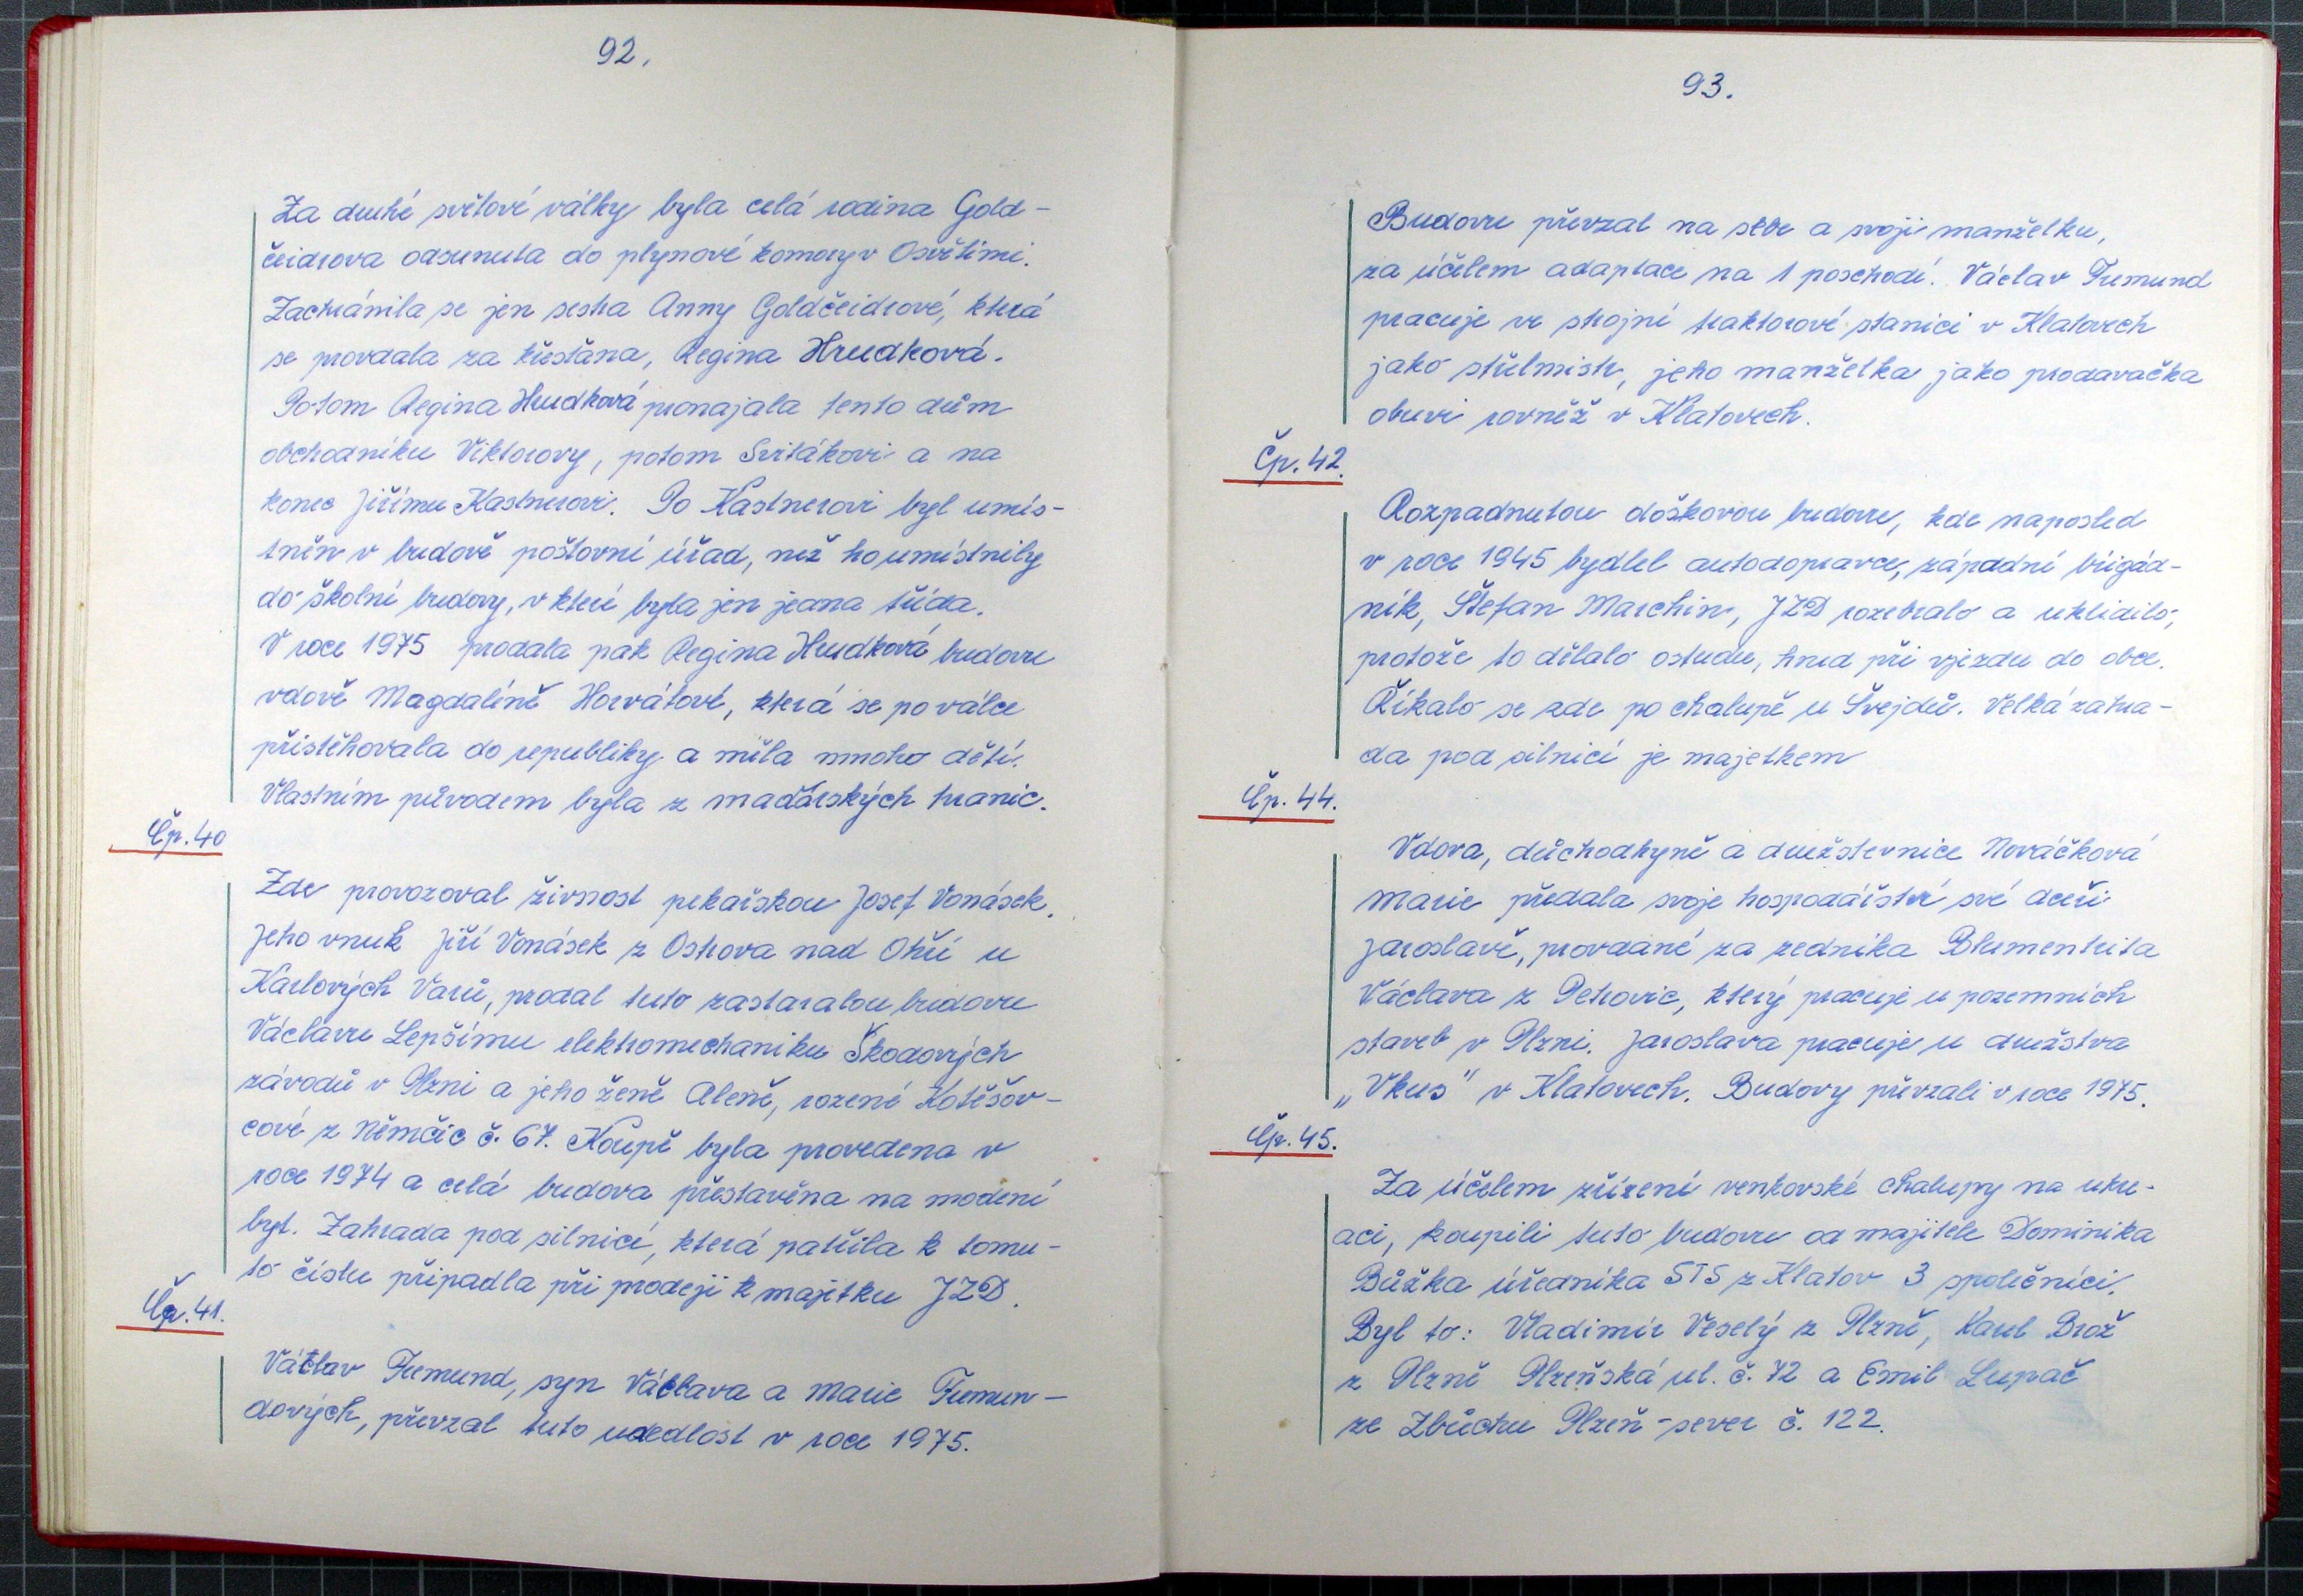 92.
Za druhé světové války byla celá rodina Gold-
čeidrova odsunuta do plynové komory v Osvětimi.
Zachránila se jen sestra Anny Goldčeidrové, která
se provdala za křesťana, Regina Hrudková.
Potom Regina Hrudková pronajala tento dům
obchodníku Viktorovy, potom Svitákovi a na
konec Jiřímu Kastnerovi. Po Kastnerovi byl umís-
tněn v budově poštovní úřad, než ho umístnily
do školní budovy, v které byla jen jedna třída.
V roce 1975 prodala pak Regina Hrudková budovu
vdově Magdaléně Horvátové, která se po válce
přistěhovala do republiky a měla mnoho dětí.
Vlastním původem byla z maďarských hranic.
Čp. 40
Zde provozoval živnost pekařskou Josef Vonásek.
Jeho vnuk Jiří Vonásek z Ostrova nad Ohří u
Karlových Varů, prodal tuto zastaralou budovu
Václavu Lepšímu elektromechaniku Škodových
závodů v Plzni a jeho ženě Aleně, rozené Kotěšov-
cové z Němčic č. 67. Koupě byla provedena v
roce 1974 a celá budova přestavěna na moderní
byt. Zahrada pod silnicí, která patřila k tomu-
to číslu připadla při prodeji k majetku JZD.
Čp. 41.
Václav Tremund, syn Václava a Marie Tremun-
dových, převzal tuto usedlost v roce 1975.
93.
Budovu převzal na sebe a svoji manželku,
za účelem adaptace na 1 poschodí. Václav Tremund
pracuje ve strojní traktorové stanici v Klatovech
jako střelmistr, jeho manželka jako prodavačka
obuvi rovněž v Klatovech.
Čp. 42.
Rozpadnutou doškovou budovu, kde naposled
v roce 1945 bydlel autodopravce, západní brigád-
ník, Štefan Marchin, JZD rozebralo a uklidilo,
protože to dělalo ostudu, hned při vjezdu do obce.
Říkalo se zde po chalupě u Švejdů. Velká zahra-
da pod silnicí je majetkem
Čp. 44.
Vdova, důchodkyně a družstevnice Nováčková
Marie předala svoje hospodářství své dceři
Jaroslavě, provdané za zedníka Blumentrita
Václava z Petrovic, který pracuje u pozemních
staveb v Plzni. Jaroslava pracuje u družstva
„Vkus" v Klatovech. Budovy převzali v roce 1975.
Čp. 45.
Za účelem zřízení venkovské chalupy na rekre-
aci, koupili tuto budovu od majitele Dominika
Bůžka úředníka STS z Klatov 3 společníci.
Byl to: Vladimír Veselý z Plzně, Karel Brož
z Plzně Plzeňská ul. č. 72 a Emil Lupač
ze Zbůchu Plzeň-sever č. 122.